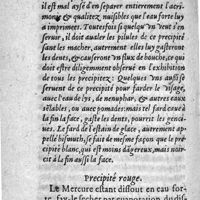 il est mal aysé d'en separer entierement l'acri-
monie & qualitez nuisibles que l'eau forte luy
a imprimees. Toutesfois si quelqu'un veut s'en
seruir, il doit aualer les pilules de ce precipité
sans les macher, autrement elles luy gasteront
les dents, & causeront un flux de bouche, ce qui
doit estre diligemment obserué en l'exhibition
de tous les precipitez: Quelques uns aussi se
seruent de ce precipité pour farder le visage,
auec l'eau de lys, de nenuphar, & autres réfri-
gerables, ou auec pomades: mais tel fard cause à
la fin face laide, gaste les dents, pourrit les genci-
ues. Le fard d'estain de glace, autrement ap-
pellé bismuth, se fait en mesme façon que le pre-
cipité blanc, qui est moins dãgereux, mais noir-
cit à la fin aussi la face.
Precipité rouge.
Le Mercure estant dissout en eau for-
te, fay-le secher par euaporation du dis-